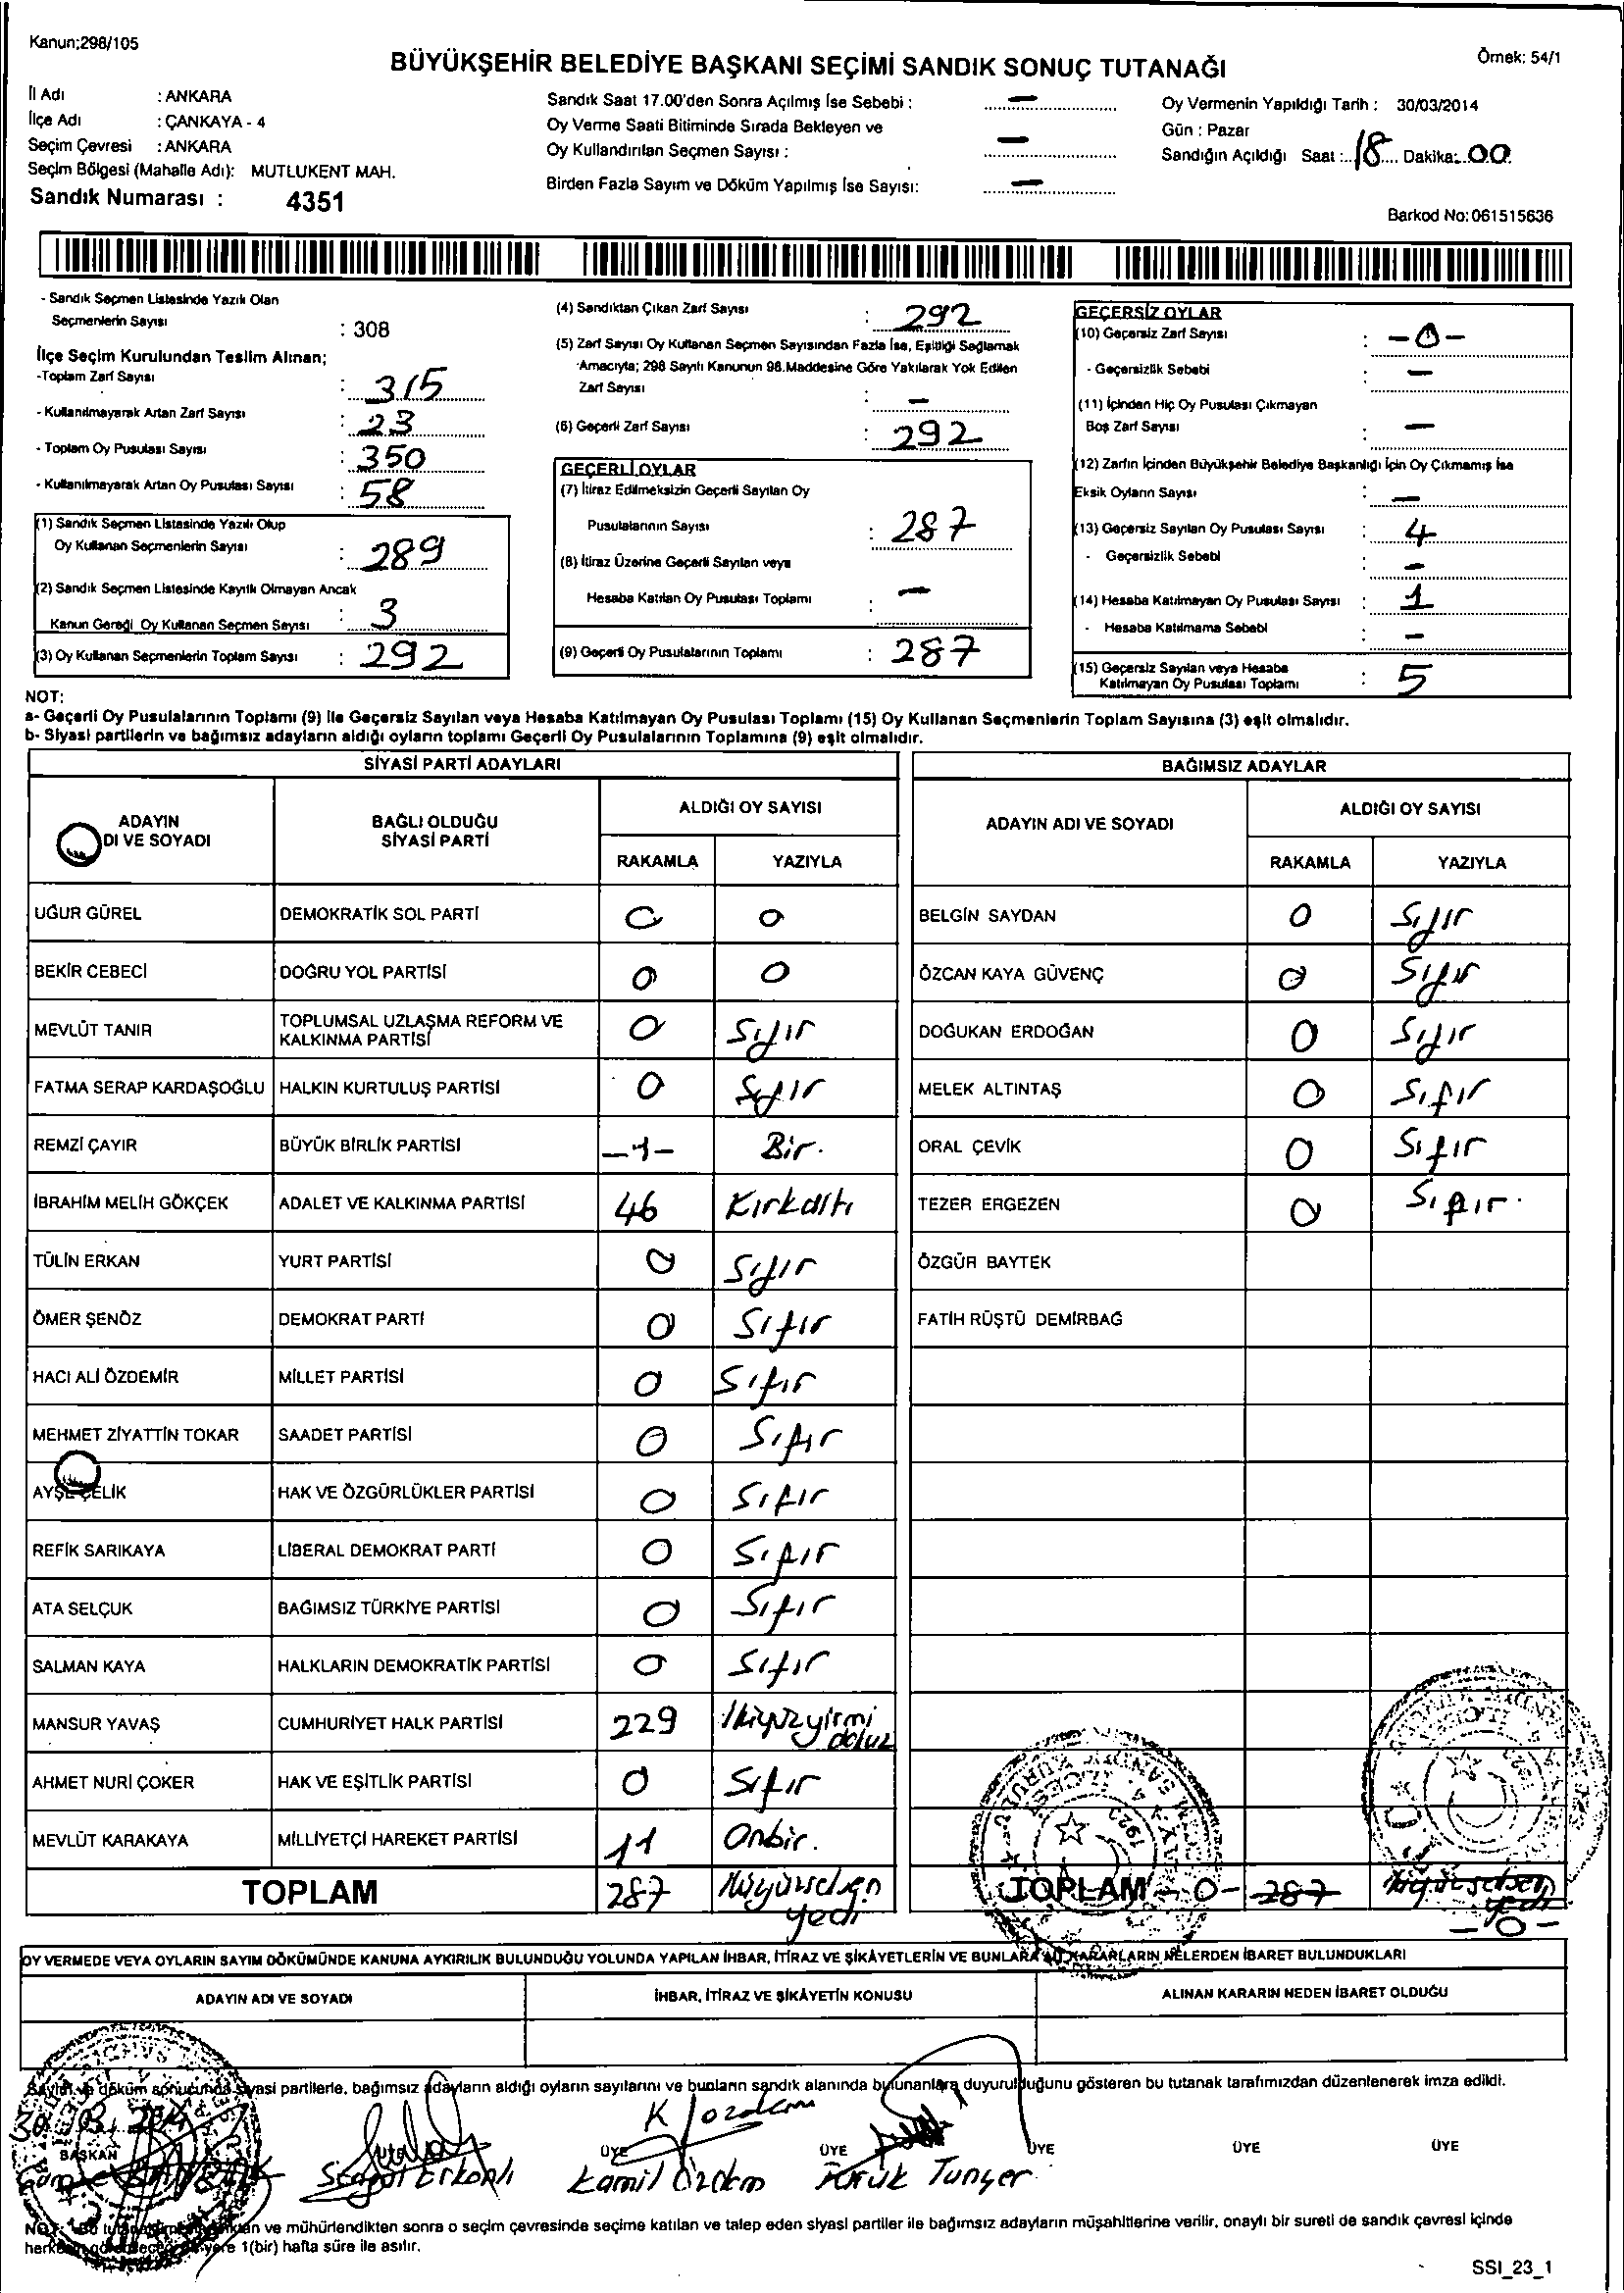 Kanun;298/105
Örnek: 54/1
BÜYÜKŞEHİR BELEDİYE BAŞKANI SEÇİMİ SANDIK SONUÇ TUTANAĞI
İl Adı : ANKARA
İlçe Adı : ÇANKAYA - 4
Seçim Çevresi : ANKARA
Seçim Bölgesi (Mahalle Adı): MUTLUKENT MAH.
Sandık Numarası : 4351
Sandık Saat 17.00'den Sonra Açılmış İse Sebebi : —
Oy Verme Saati Bitiminde Sırada Bekleyen ve
Oy Kullandırılan Seçmen Sayısı : —
Birden Fazla Sayım ve Döküm Yapılmış İse Sayısı: —
Oy Vermenin Yapıldığı Tarih : 30/03/2014
Gün : Pazar
Sandığın Açıldığı Saat :..18.... Dakika:..00.
Barkod No:061515636
- Sandık Seçmen Listesinde Yazılı Olan
Seçmenlerin Sayısı : 308
İlçe Seçim Kurulundan Teslim Alınan;
-Toplam Zarf Sayısı : 315
- Kullanılmayarak Artan Zarf Sayısı : 23
- Toplam Oy Pusulası Sayısı : 350
- Kullanılmayarak Artan Oy Pusulası Sayısı : 58
(1) Sandık Seçmen Listesinde Yazılı Olup
Oy Kullanan Seçmenlerin Sayısı : 289
(2) Sandık Seçmen Listesinde Kayıtlı Olmayan Ancak
Kanun Gereği Oy Kullanan Seçmen Sayısı : 3
(3) Oy Kullanan Seçmenlerin Toplam Sayısı : 292
(4) Sandıktan Çıkan Zarf Sayısı : 292
(5) Zarf Sayısı Oy Kullanan Seçmen Sayısından Fazla İse, Eşitliği Sağlamak
Amacıyla; 298 Sayılı Kanunun 98.Maddesine Göre Yakılarak Yok Edilen
Zarf Sayısı : —
(6) Geçerli Zarf Sayısı : 292
GEÇERLİ OYLAR
(7) İtiraz Edilmeksizin Geçerli Sayılan Oy
Pusulalarının Sayısı : 287
(8) İtiraz Üzerine Geçerli Sayılan veya
Hesaba Katılan Oy Pusulası Toplamı : —
(9) Geçerli Oy Pusulalarının Toplamı : 287
GEÇERSİZ OYLAR
(10) Geçersiz Zarf Sayısı : -0-
- Geçersizlik Sebebi : —
(11) İçinden Hiç Oy Pusulası Çıkmayan
Boş Zarf Sayısı : —
(12) Zarfın İçinden Büyükşehir Belediye Başkanlığı İçin Oy Çıkmamış İse
Eksik Oyların Sayısı : —
(13) Geçersiz Sayılan Oy Pusulası Sayısı : 4
- Geçersizlik Sebebi : —
(14) Hesaba Katılmayan Oy Pusulası Sayısı : 1
- Hesaba Katılmama Sebebi : —
(15) Geçersiz Sayılan veya Hesaba
Katılmayan Oy Pusulası Toplamı : 5
NOT:
a- Geçerli Oy Pusulalarının Toplamı (9) ile Geçersiz Sayılan veya Hesaba Katılmayan Oy Pusulası Toplamı (15) Oy Kullanan Seçmenlerin Toplam Sayısına (3) eşit olmalıdır.
b- Siyasi partilerin ve bağımsız adayların aldığı oyların toplamı Geçerli Oy Pusulalarının Toplamına (9) eşit olmalıdır.
SİYASİ PARTİ ADAYLARI
ADAYIN
DI VE SOYADI
BAĞLI OLDUĞU
SİYASİ PARTİ
ALDIĞI OY SAYISI
RAKAMLA YAZIYLA
UĞUR GÜREL DEMOKRATİK SOL PARTİ 0 0
BEKİR CEBECİ DOĞRU YOL PARTİSİ 0 0
MEVLÜT TANIR TOPLUMSAL UZLAŞMA REFORM VE
KALKINMA PARTİSİ 0 Sıfır
FATMA SERAP KARDAŞOĞLU HALKIN KURTULUŞ PARTİSİ 0 Sıfır
REMZİ ÇAYIR BÜYÜK BİRLİK PARTİSİ -1- Bir.
İBRAHİM MELİH GÖKÇEK ADALET VE KALKINMA PARTİSİ 46 Kırkaltı
TÜLİN ERKAN YURT PARTİSİ 0 Sıfır
ÖMER ŞENÖZ DEMOKRAT PARTİ 0 Sıfır
HACI ALİ ÖZDEMİR MİLLET PARTİSİ 0 Sıfır
MEHMET ZİYATTİN TOKAR SAADET PARTİSİ 0 Sıfır
AYŞE ÇELİK HAK VE ÖZGÜRLÜKLER PARTİSİ 0 Sıfır
REFİK SARIKAYA LİBERAL DEMOKRAT PARTİ 0 Sıfır
ATA SELÇUK BAĞIMSIZ TÜRKİYE PARTİSİ 0 Sıfır
SALMAN KAYA HALKLARIN DEMOKRATİK PARTİSİ 0 Sıfır
MANSUR YAVAŞ CUMHURİYET HALK PARTİSİ 229 İkiyüzyirmi
dokuz
AHMET NURİ ÇOKER HAK VE EŞİTLİK PARTİSİ 0 Sıfır
MEVLÜT KARAKAYA MİLLİYETÇİ HAREKET PARTİSİ 11 Onbir.
TOPLAM 287 İkiyüzseksen
yedi
BAĞIMSIZ ADAYLAR
ADAYIN ADI VE SOYADI
ALDIĞI OY SAYISI
RAKAMLA YAZIYLA
BELGİN SAYDAN 0 Sıfır
ÖZCAN KAYA GÜVENÇ 0 Sıfır
DOĞUKAN ERDOĞAN 0 Sıfır
MELEK ALTINTAŞ 0 Sıfır
ORAL ÇEVİK 0 Sıfır
TEZER ERGEZEN 0 Sıfır.
ÖZGÜR BAYTEK
FATİH RÜŞTÜ DEMİRBAĞ
TOPLAM -0- 287 ikiyüzseksen
yedi
-0-
OY VERMEDE VEYA OYLARIN SAYIM DÖKÜMÜNDE KANUNA AYKIRILIK BULUNDUĞU YOLUNDA YAPILAN İHBAR, İTİRAZ VE ŞİKÂYETLERİN VE BUNLARA AİT KARARLARIN NELERDEN İBARET BULUNDUKLARI
ADAYIN ADI VE SOYADI
İHBAR, İTİRAZ VE ŞİKÂYETİN KONUSU
ALINAN KARARIN NEDEN İBARET OLDUĞU
Sayım ve döküm sonucunda siyasi partilerle, bağımsız adayların aldığı oyların sayılarını ve bunların sandık alanında bulunanlara duyurulduğunu gösteren bu tutanak tarafımızdan düzenlenerek imza edildi.
30.03.2014
K Özdem
BAŞKAN ÜYE ÜYE ÜYE ÜYE ÜYE
Kamil Özdem Faruk Tunçer
NOT: Bu ve mühürlendikten sonra o seçim çevresinde seçime katılan ve talep eden siyasi partiler ile bağımsız adayların müşahitlerine verilir, onaylı bir sureti de sandık çevresi içinde
herkesin göreceği yere 1(bir) hafta süre ile asılır.
SSI_23_1